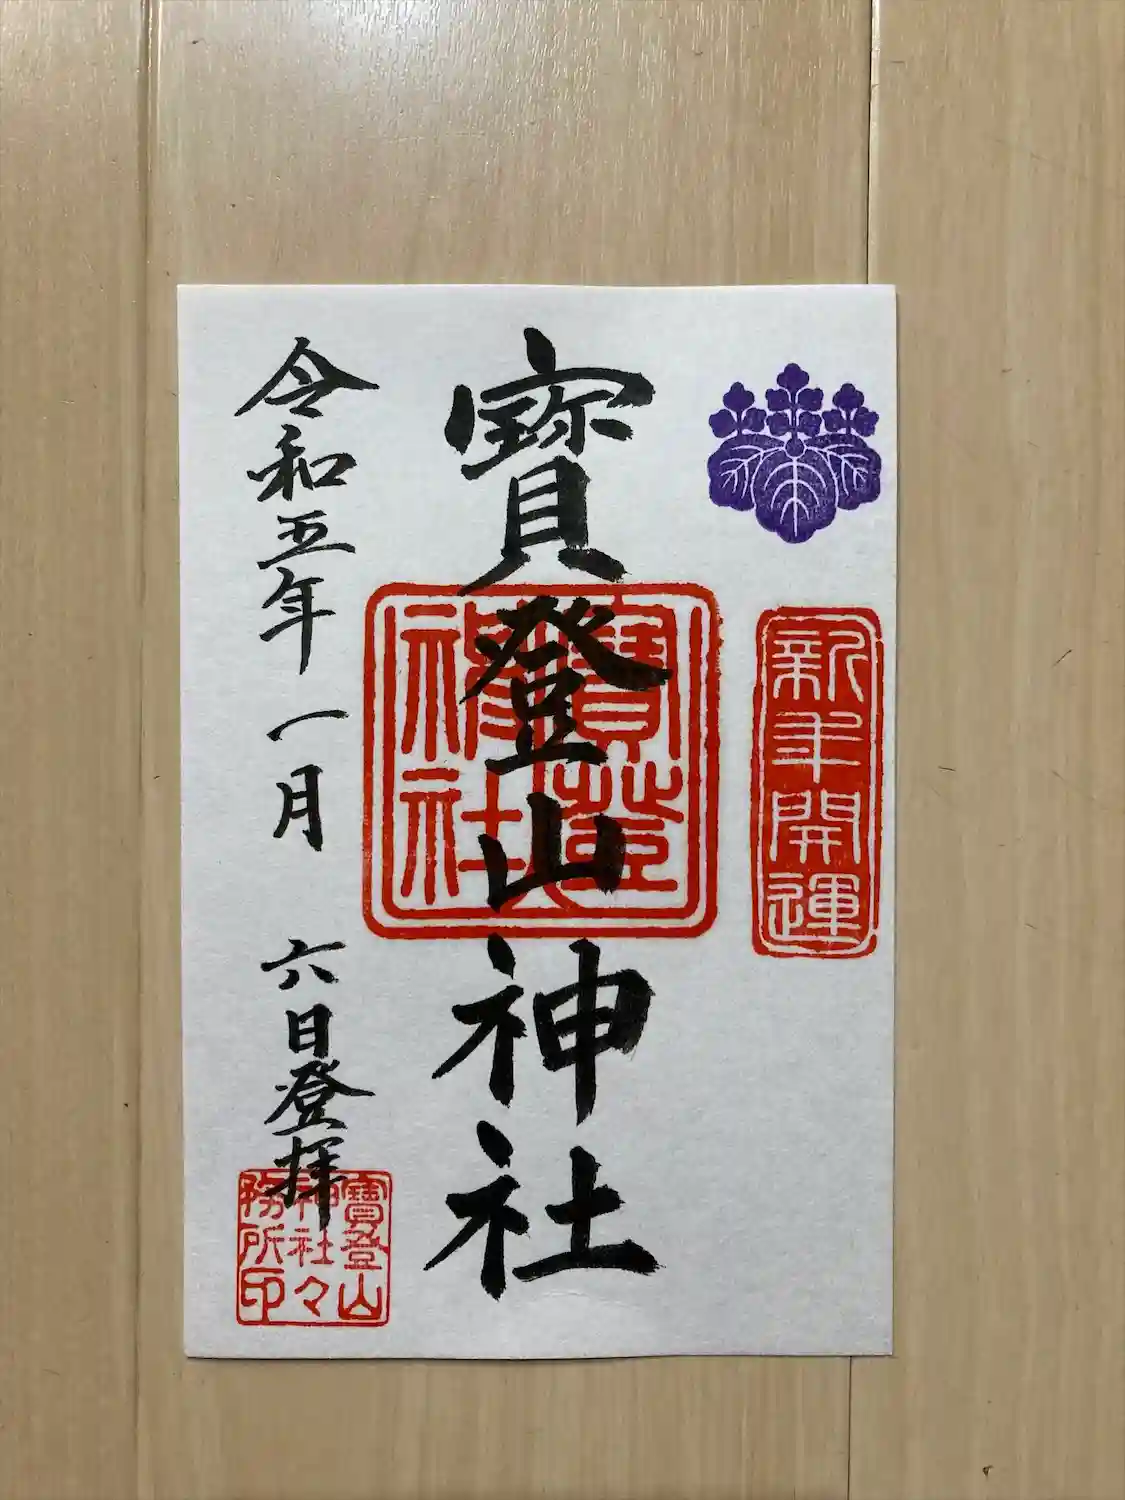 新年開運
寳登山神社
寳登山神社
令和五年一月六日登拝
寳登山
神社々
務所印